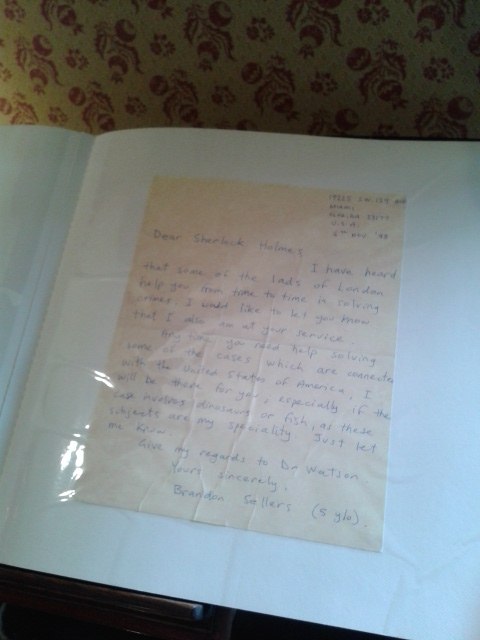 Miami
Florida
U.S.A.
Dear Sherlock Holmes
I have heard
that some of the lads of London
help you from time to time in solving
crimes. I would like to let you know
that I also am at your service.
Any time you need help solving
some of the cases which are connected
with the United States of America, I
will be there for you, especially if the
case involves dinosaurs or fish, as these
subjects are my speciality. Just let
me know.
Give my regards to Dr Watson
Yours sincerely,
Brandon Sellers (5 y/o).